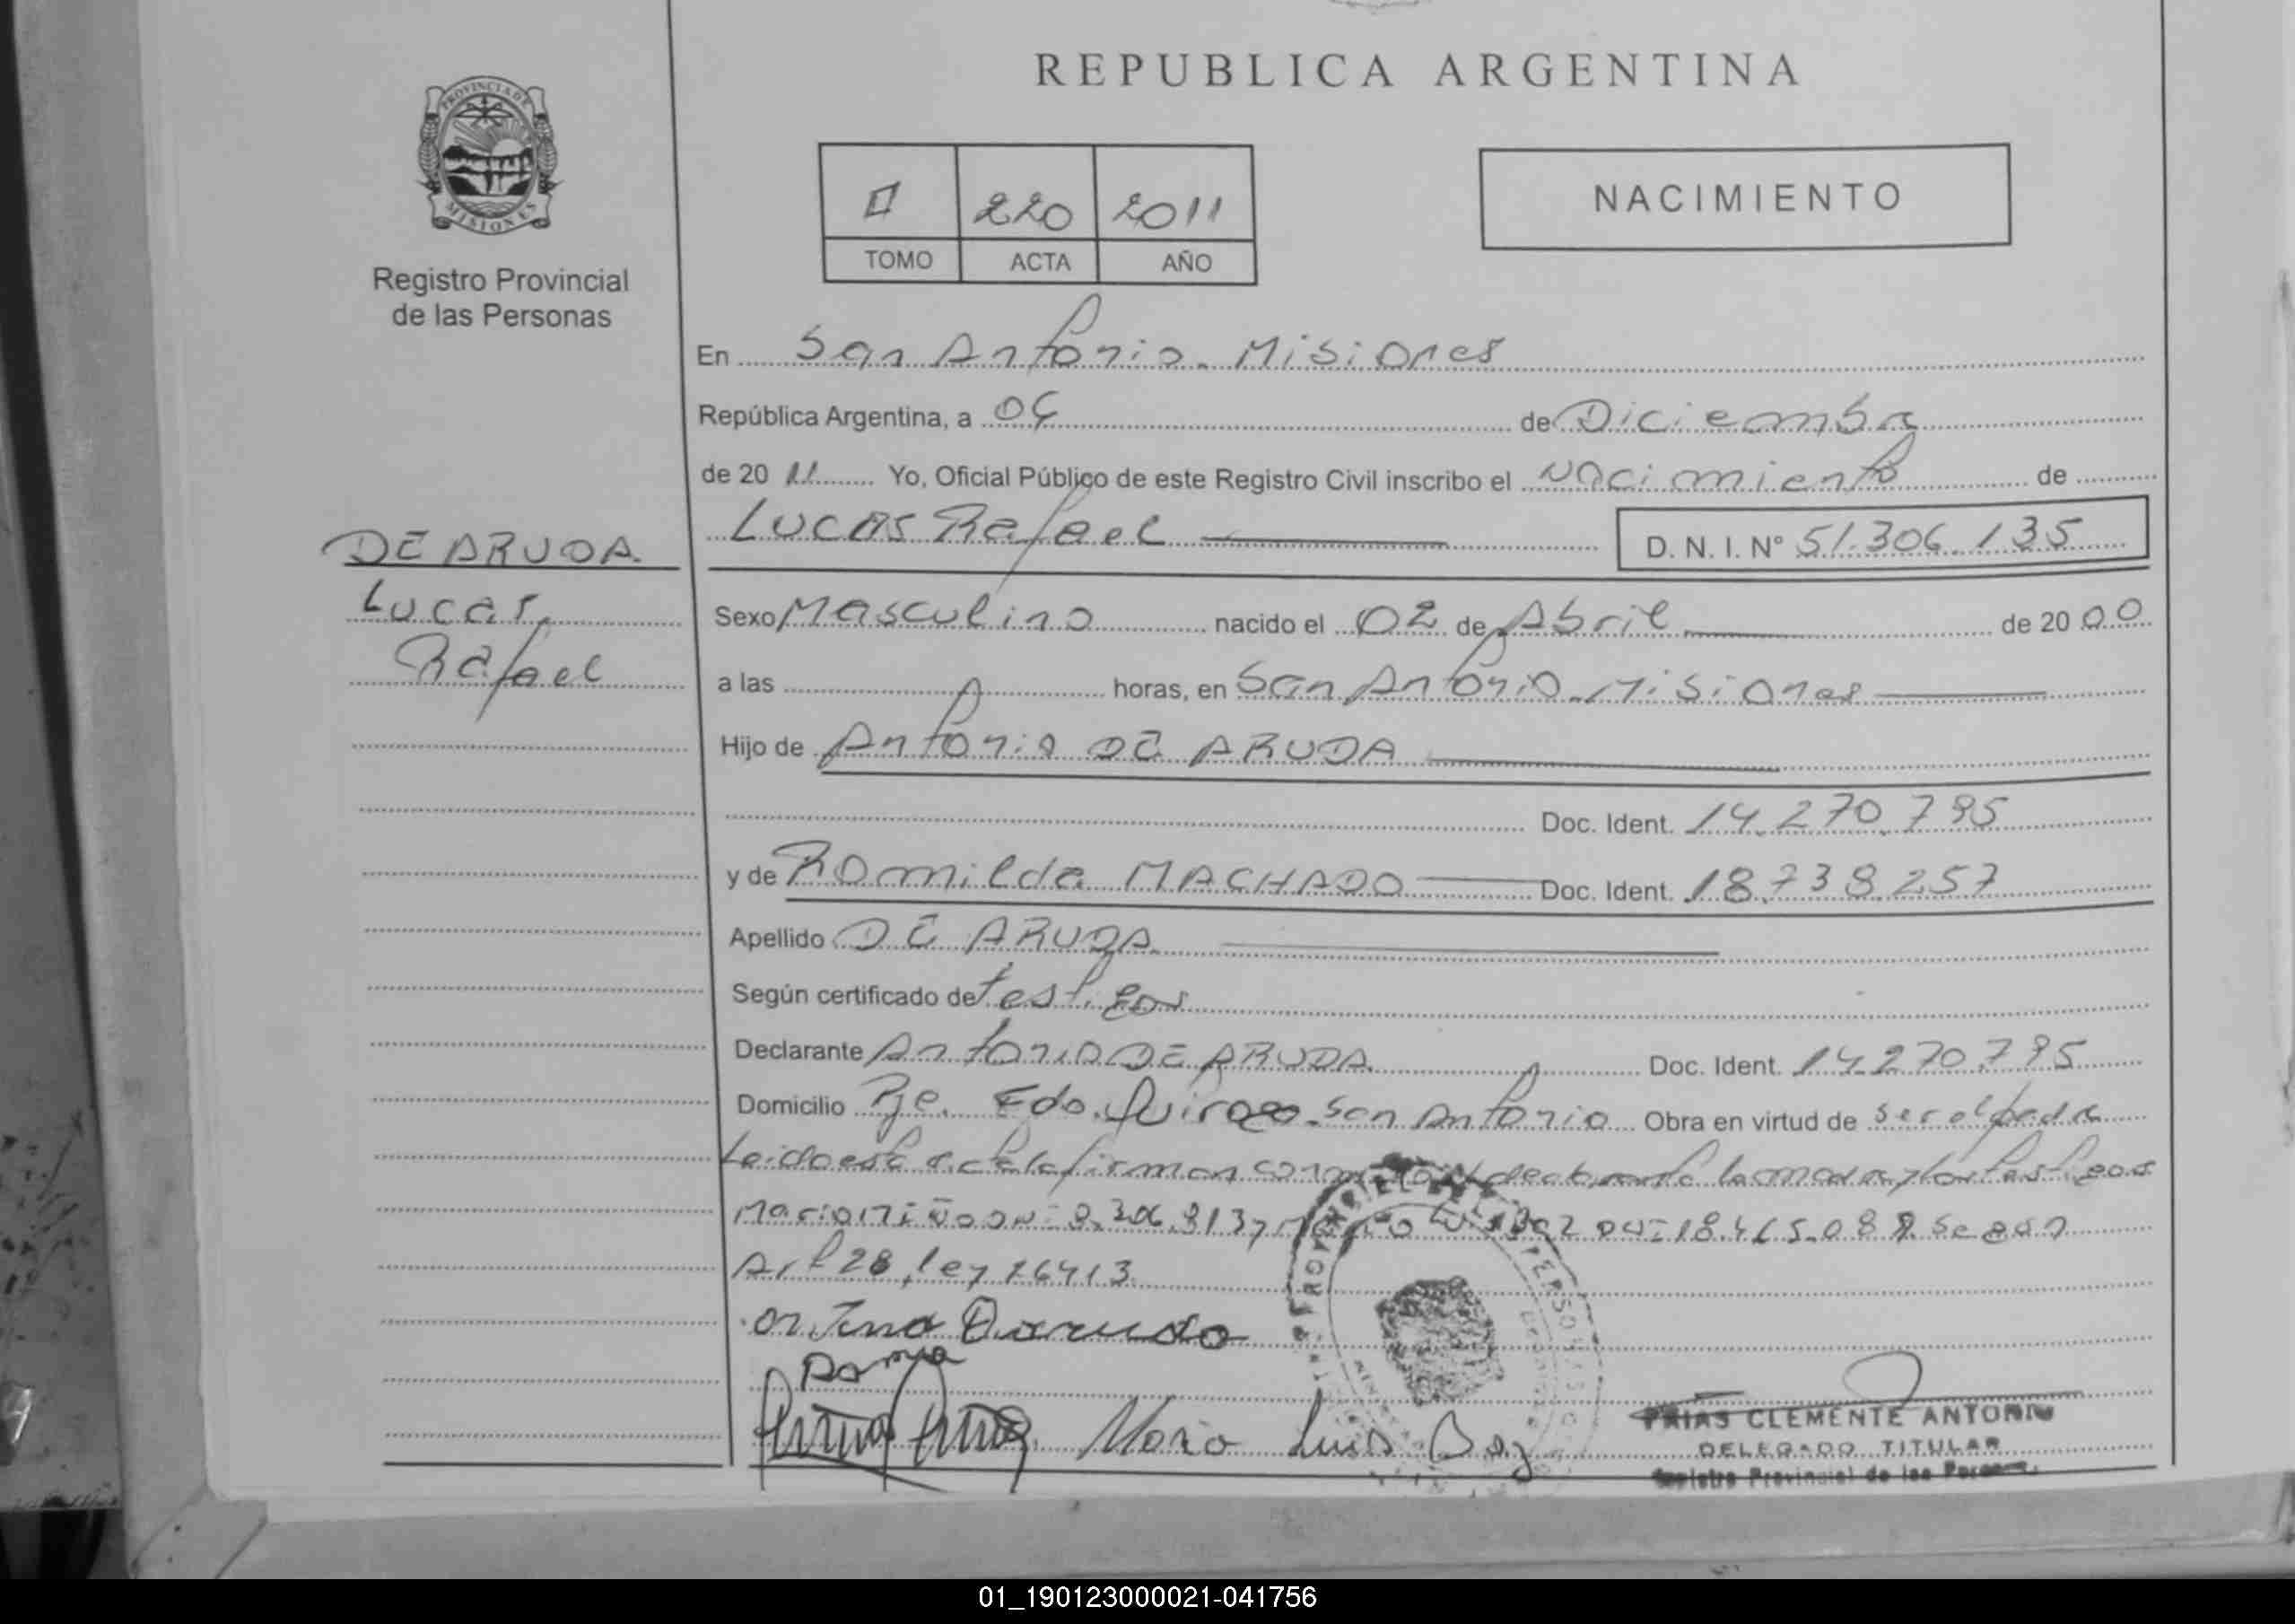 REPUBLICA ARGENTINA
PROVINCIA DE
MISIONES
Registro Provincial
de las Personas
220 2011
TOMO ACTA AÑO
NACIMIENTO
En San Antonio - Misiones
República Argentina, a 06 de Diciembre
de 20 11 Yo, Oficial Público de este Registro Civil inscribo el nacimiento de
Lucas Rafael D. N. I. Nº 51.306.135
DE ARUDA
Lucas
Rafael
Sexo Masculino nacido el 02 de Abril de 20 00
a las horas, en San Antonio - Misiones
Hijo de Antonio DE ARUDA
Doc. Ident. 14.270.795
y de Romilda MACHADO Doc. Ident. 18.738.257
Apellido DE ARUDA
Según certificado de testigos
Declarante Antonio DE ARUDA Doc. Ident. 14.270.795
Domicilio Pje. Edo. San Antonio Obra en virtud de ser el padre
Leida esta acta la firman conmigo el declarante la madre y los testigos
Mario Luis Baz según
Art 28, ley 26413
Mario Luis Baz
FRIAS CLEMENTE ANTONIO
DELEGADO TITULAR
Registro Provincial de las Personas
01_190123000021-041756